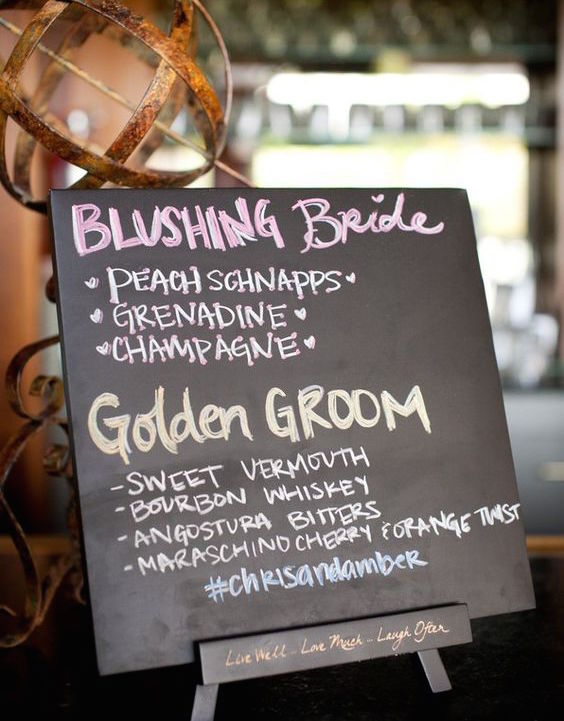 BLUSHING Bride
PEACH SCHNAPPS
GRENADINE
CHAMPAGNE
Golden GROOM
- SWEET VERMOUTH
- BOURBON WHISKEY
- ANGOSTURA BITTERS
- MARASCHINO CHERRY & ORANGE TWIST
#chrisandamber
Live Well .. Love Much .. Laugh Often